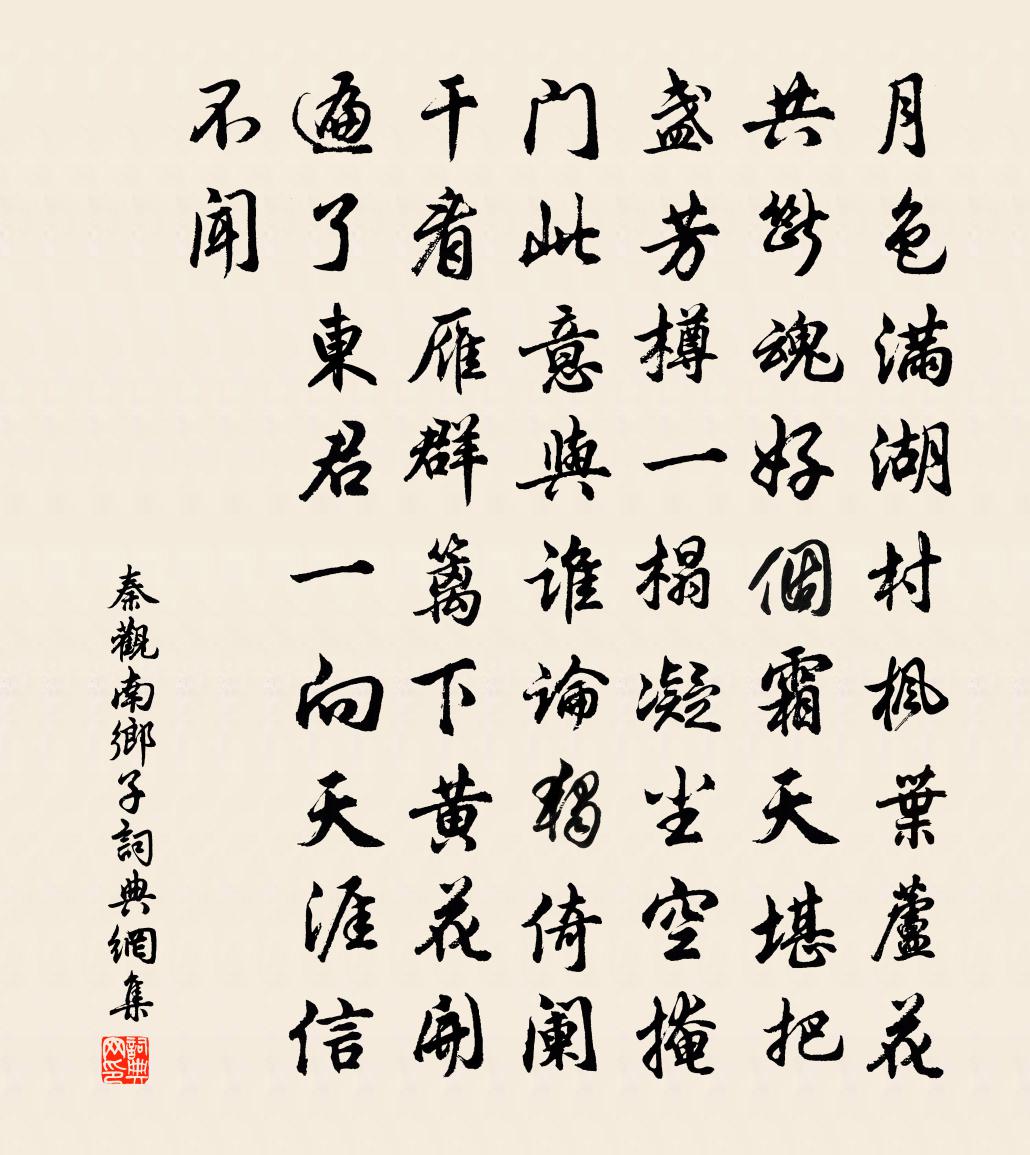 月色滿湖村楓葉蘆花
共斷魂好個霜天堪把
盞芳樽一榻凝尘空掩
门此意與誰論獨倚阑
干看雁群籬下黄花開
遍了東君一向天涯信
不闻
秦觀南鄉子詞典網集
詞典网印